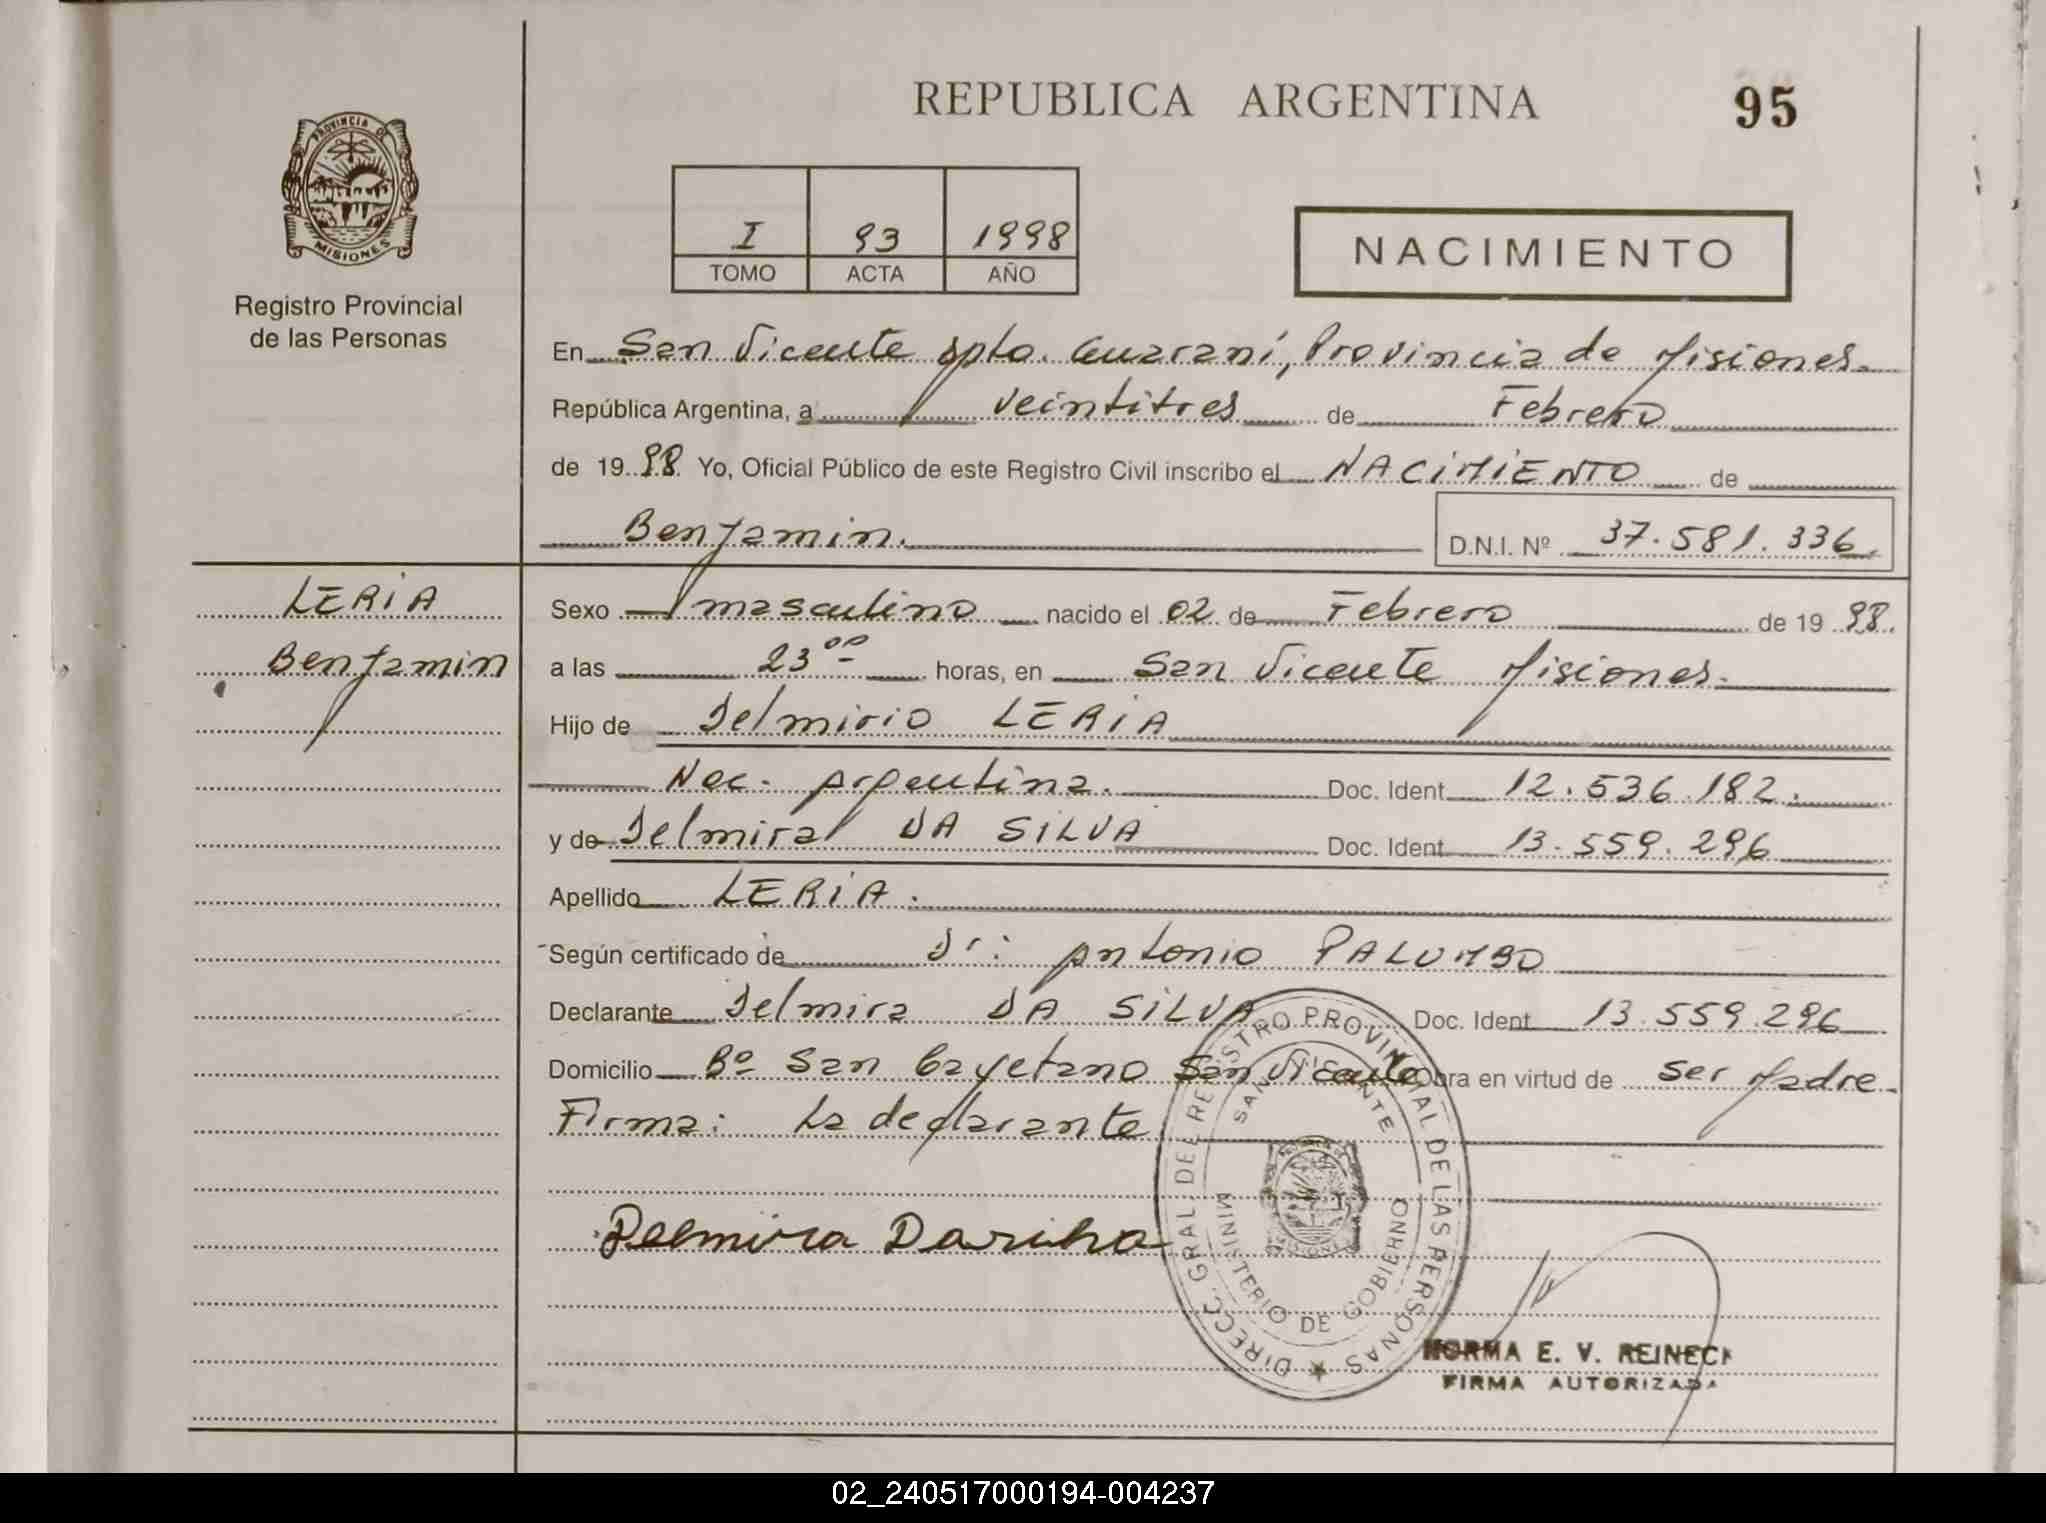 REPUBLICA ARGENTINA
95
PROVINCIA DE
MISIONES
Registro Provincial
de las Personas
I 93 1998
TOMO ACTA AÑO
NACIMIENTO
En San Vicente Dpto. Guaraní, Provincia de Misiones.
República Argentina, a veintitres de Febrero
de 19 98 Yo, Oficial Público de este Registro Civil inscribo el NACIMIENTO de
Benjamin.
D.N.I. Nº 37.581.336
LERIA
Benjamin
Sexo masculino nacido el 02 de Febrero de 19 98.
a las 23 00 horas, en San Vicente Misiones.
Hijo de Delmirio LERIA
Nac. Argentina. Doc. Ident 12.536.182.
y de Delmira DA SILVA Doc. Ident 13.559.296
Apellido LERIA.
Según certificado de Dr: Antonio PALUMBO
Declarante Delmira DA SILVA Doc. Ident 13.559.296
Domicilio Bº San Cayetano San Vicente Obra en virtud de ser Madre.
Firma: La declarante
Delmira Dasilva
DIRECC. GRAL. DEL REGISTRO PROVINCIAL DE LAS PERSONAS
SAN VICENTE
MINISTERIO DE GOBIERNO
NORMA E. V. REINECK
FIRMA AUTORIZADA
02_240517000194-004237